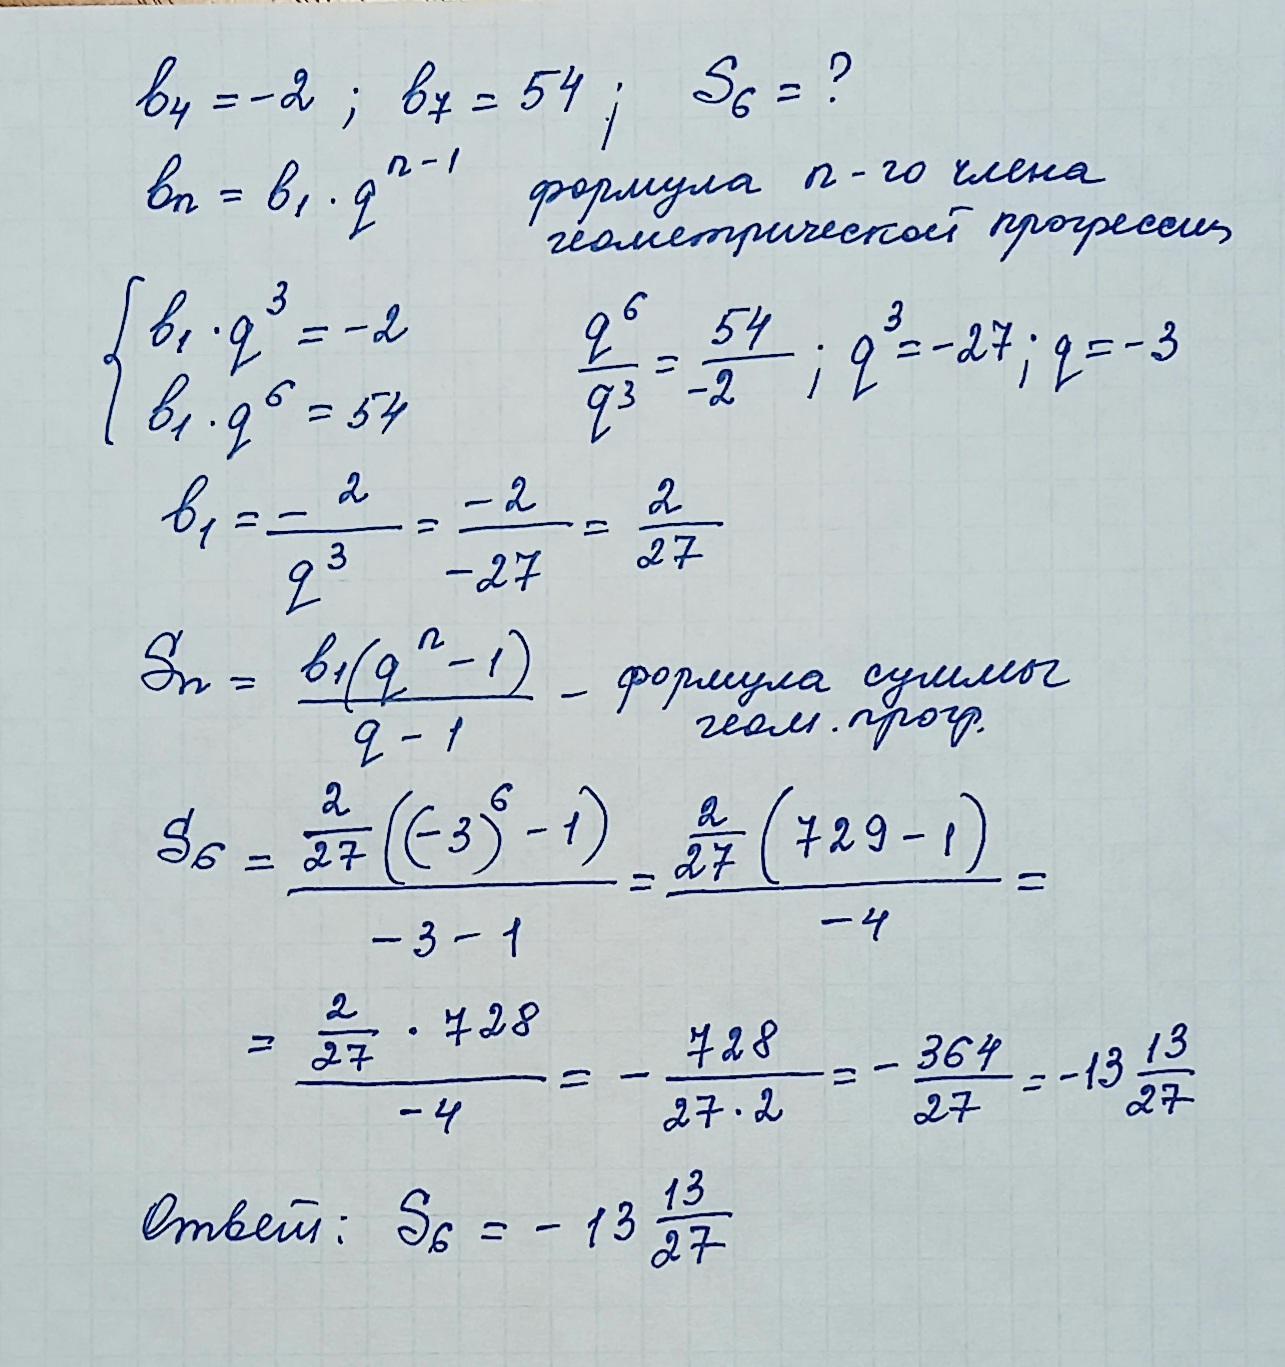 b₄ = -2 ; b₇ = 54 ; S₆ = ?
bₙ = b₁ · qⁿ⁻¹ формула n-го члена
геометрической прогрессии
{ b₁ · q³ = -2
b₁ · q⁶ = 54
q⁶/q³ = 54/-2 ; q³ = -27 ; q = -3
b₁ = -2/q³ = -2/-27 = 2/27
Sₙ = b₁(qⁿ - 1)/q - 1 – формула суммы
геом. прогр.
S₆ = 2/27((-3)⁶ - 1)/-3 - 1 = 2/27(729 - 1)/-4 =
= 2/27 · 728/-4 = - 728/27·2 = - 364/27 = -13 13/27
Ответ: S₆ = - 13 13/27